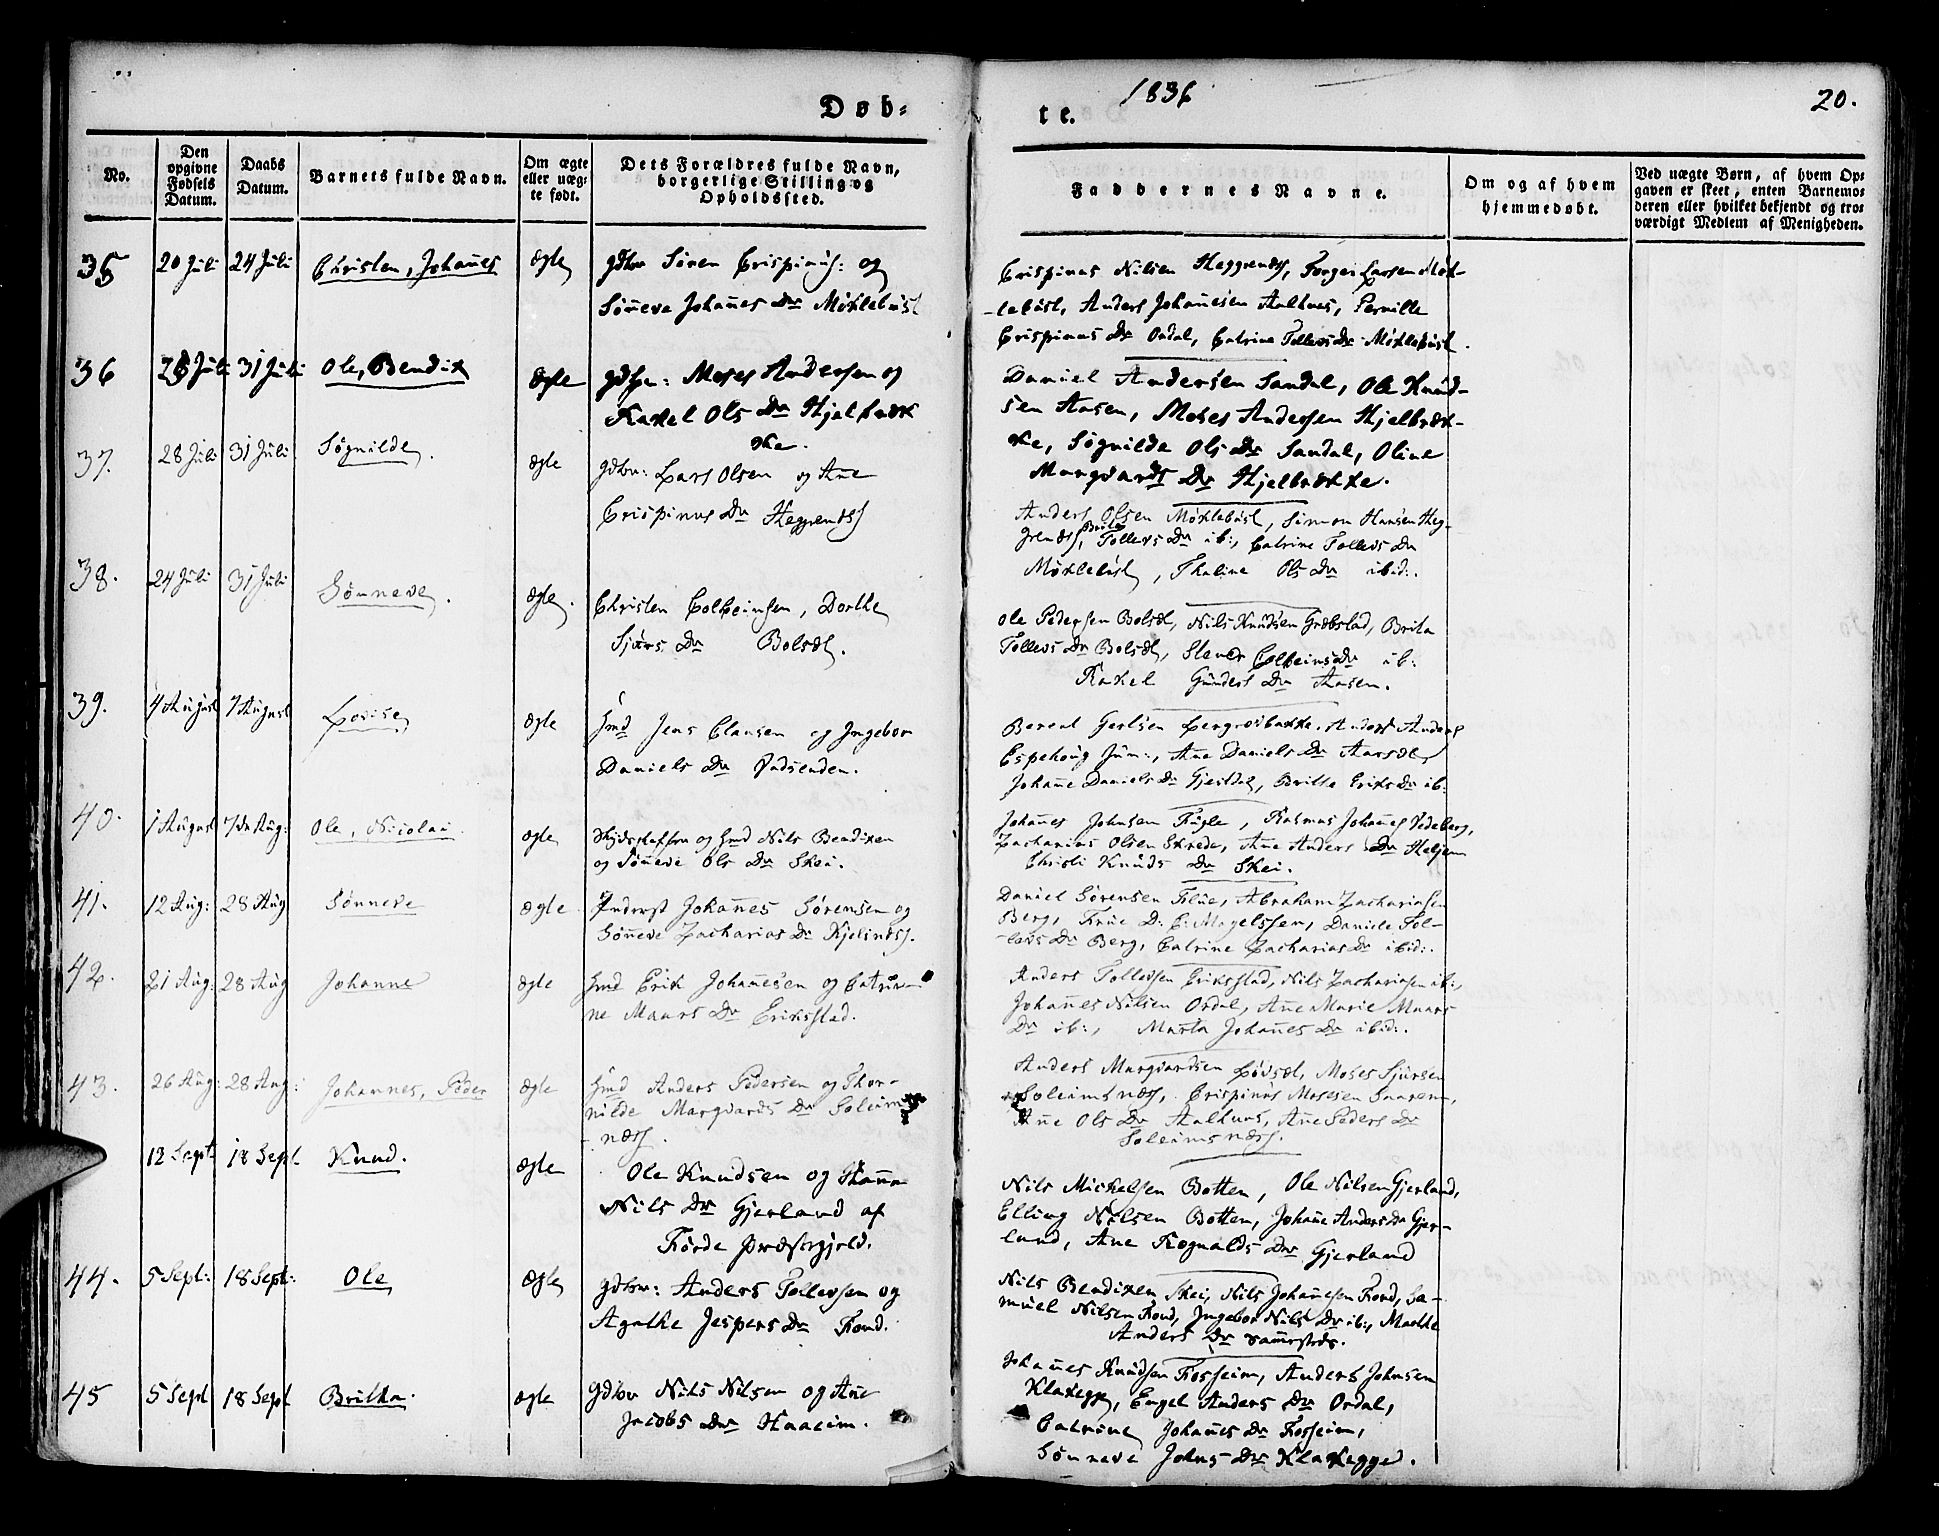 Døb=
te.
1836
20.
No.
Den opgivne Fødsels Datum.
Daabs Datum.
Barnets fulde Navn.
Om ægte eller uæg= te født.
Dets Forældres fulde Navn, borgerlige Stilling og Opholdssted.
Faddernes Navne.
Om og af hvem hjemmedøbt.
Ved uægte Børn, af hvem Op= gaven er skeet, enten Barnemo= deren eller hvilket bekjendt og tro= værdigt Medlem af Menigheden.
35 20 Juli 24 Juli Christen, Johañes ægte Gdbr Sören Crispinus: og
Söneve Johañes Dr Myklebust
Crispinus Nilsen Heggenæss, Torger Larsen Myk-
lebust, Anders Johañesen Aalhus, Pernille
Crispinus Dr Ordal, Catrine Tollevs Dr Myklebust.
36 28 Juli 31 Juli Ole, Bendix ægte Gdbr: Moses Andersen og
Raxel Ols Dr Hjelbræk
ke.
Daniel Andersen Sandal, Ole Knud-
sen Aasen, Moses Andersen Hjelbræk-
ke, Søgnilde Ols Dr Sandal, Oline
Marqvards Dr Hjelbrække.
37. 28 Juli 31 Juli Søgnilde. ægte Gdbr: Lars Olsen og Añe
Crispinus Dr Heggenæss
Anders Olsen Myklebust, Simon Hansen Heg-
genæss, Brita Tollevs Dr ib:, Catrine Tollevs Dr
Myklebust, Thaline Ols Dr ibid:.
38. 24 Juli 31 Juli Sönneve. ægte. Christen Colbeinsen, Dorthe
Sjurs Dr Bolsæt.
Ole Pedersen Bolsæt, Nils Knudsen Græbstad, Brita
Tollevs Dr Bolsæt, Colbeins Dr ib:
Raxel Gunders Dr Aasen.
39. 4 August 7 August Lovise ægte Hmd Jens Clausen og Ingebor
Daniels Dr Vadsenden.
Berent Gertsen Anders Anders
Espehoug Jun:, Añe Daniels Dr Aarsæt,
Johañe Daniels Dr Gjesdal, Britha Eriks Dr ib:
40. 1 August 7de Aug: Ole, Nicolai. ægte Skydsskaffer og Hmd Nils Bendixen
og Söneve Ols Dr Skei.
Johañes Johnsen Fugle, Rasmus Johañes Vedeberg,
Zacharias Olsen Skrede, Añe Anders Dr Heljem
Christi Knuds Dr Skei.
41. 12 Aug: 28 Aug Sönneve ægte Inderst Johañes Sörensen og
Söneve Zacharias Dr Kjelsnæss.
Daniel Sørensen Flue, Abraham Zachariasen
Berg, Frue D: C: Magelssen, Daniele Tol-
levs Dr Berg, Catrine Zacharias Dr ibid:.
42. 21 Aug: 28 Aug Johanne ægte Hmd Erik Johañesen og Catrin-
ne Maurs Dr Eriksstad.
Anders Tollevsen Eriksstad, Nils Zachariasen ib:,
Johañes Nilsen Ordal, Añe Marie Maurs
Dr ib:, Marta Johañes Dr ibid:.
43. 26 Aug: 28 Aug: Johannes, Peder ægte Hmd Anders Pedersen og Thor-
nilde Marqvards Dr Soleims
næss.
Anders Marqvardsen Løvsæt, Moses Sjursen
Soleimsnæss, Crispinus Mosesen Aarem,
Añe Ols Dr Aalhus, Añe Peders Dr
Soleimsnæss.
12 Sept 18 Sept. Knud. ægte Ole Knudsen og Hañna
Nils Dr Gjerland af
Förde Præstegjeld.
Nils Mickelsen Botten, Ole Nilsen Gjerland,
Elling Nilsen Botten, Johañe Anders Dr Gjer-
land, Añe Rognalds Dr Gjerland
44. 5 Sept: 18 Sept: Ole ægte Gdbr: Anders Tollevsen og
Agathe Jespers Dr Fond.
Nils Bendixen Skei, Nils Johañesen Fond, Sa-
muel Nilsen Fond, Ingebor Nils Dr ib:, Marthe
Anders Dr sammesteds.
45 5 Sept 18 Sept Britha. ægte Gdbr Nils Nilsen og Añe
Jacobs Dr Haaeim.
Johañes Knudsen Fosseim, Anders Johnsen
Klakegg, Engel Anders Dr Ordal,
Catrine Johañes Dr Fosseim,
Sönneve Johns Dr Klakegg.